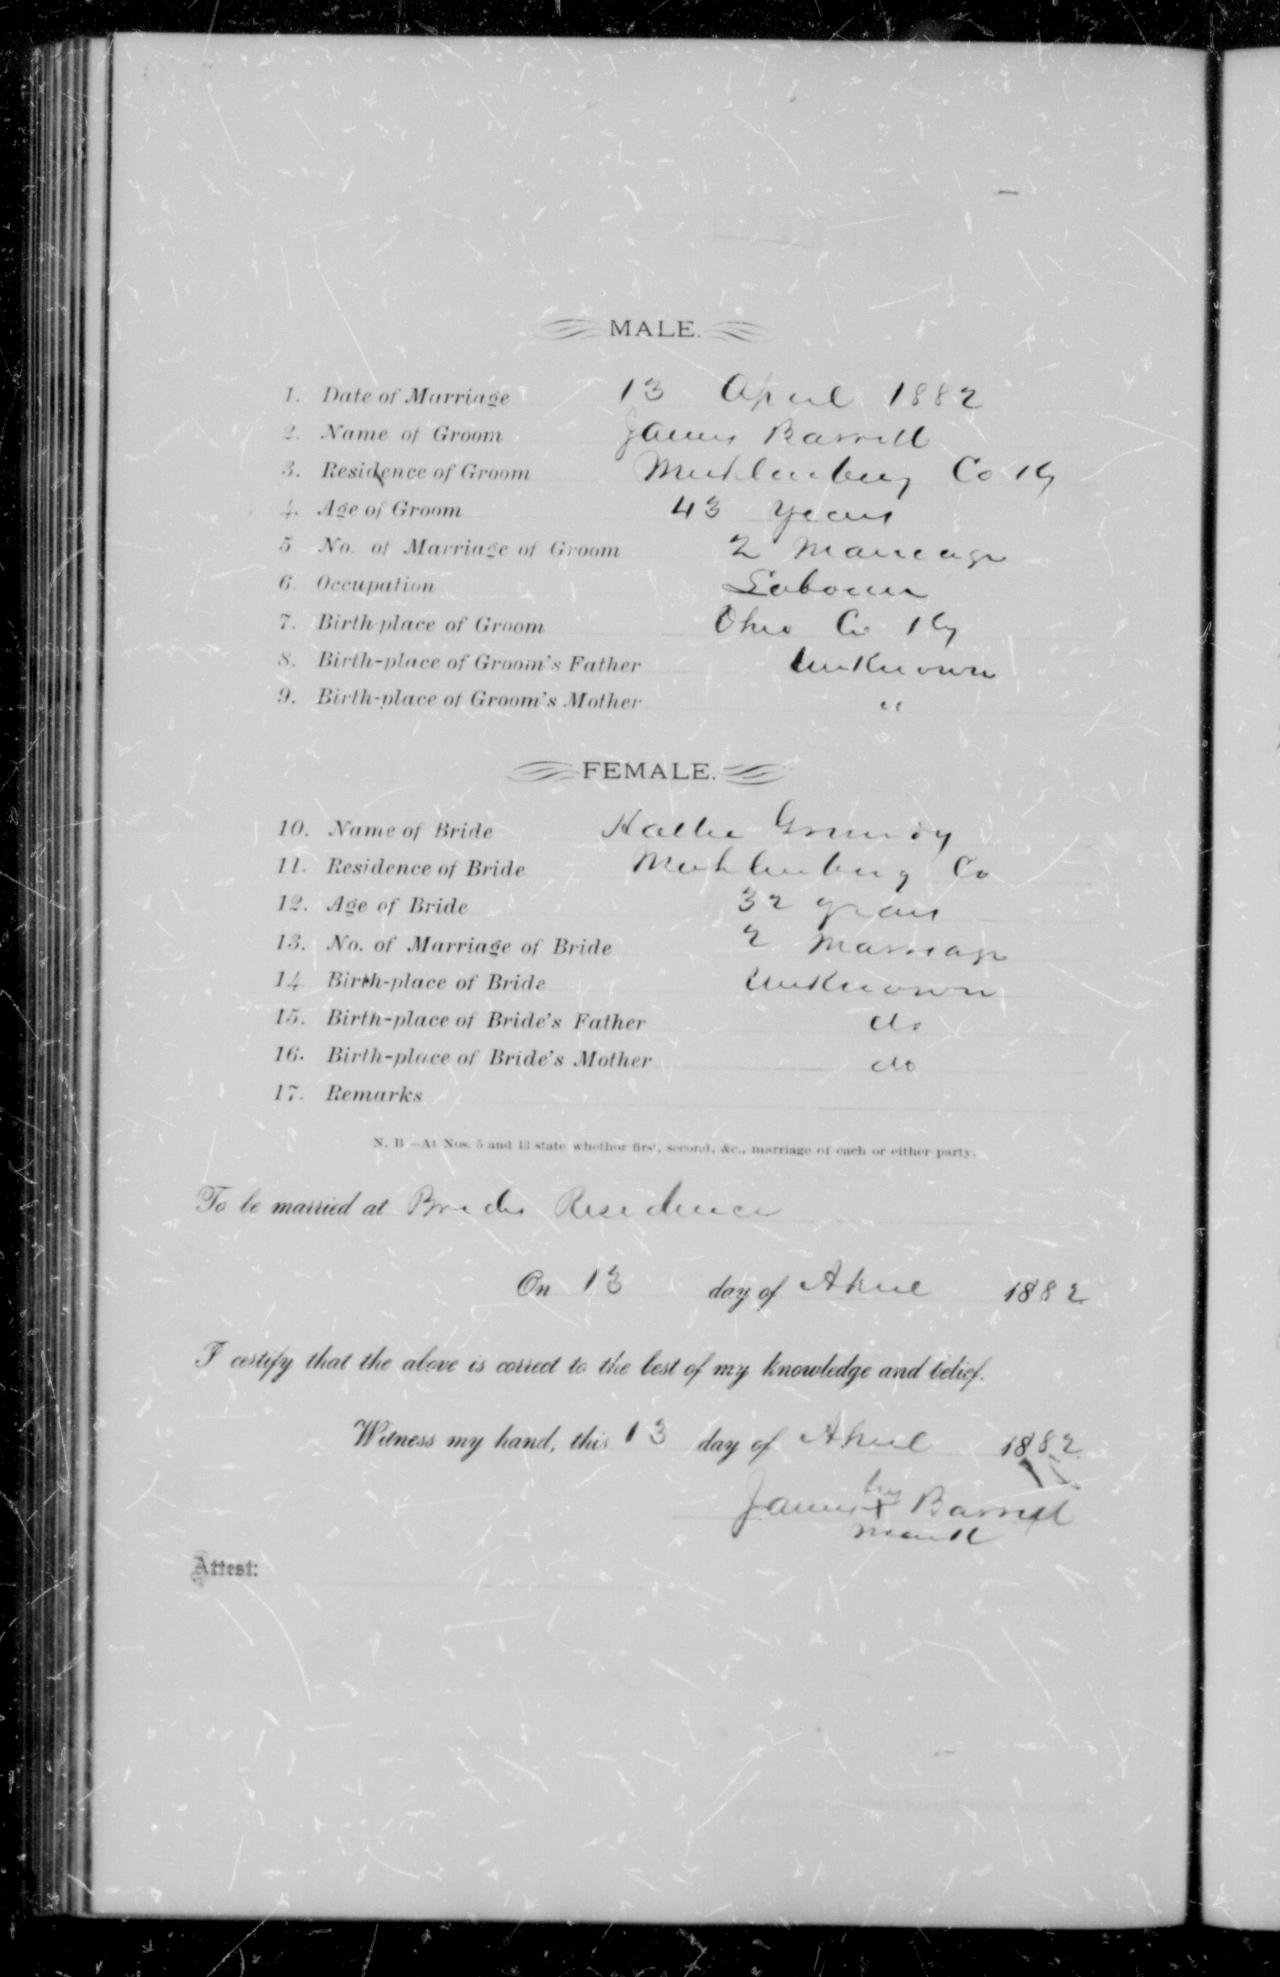 MALE.
1. Date of Marriage 13 April 1882
2. Name of Groom James Barrett
3. Residence of Groom Muhlenberg Co Ky
4. Age of Groom 43 Years
5 No. of Marriage of Groom 2 Marriage
6. Occupation Laborer
7. Birth-place of Groom Ohio Co Ky
8. Birth-place of Groom's Father Unknown
9. Birth-place of Groom's Mother "
FEMALE.
10. Name of Bride Hallie
11. Residence of Bride Muhlenberg Co
12. Age of Bride 32 years
13. No. of Marriage of Bride 2 Marriage
14 Birth-place of Bride Unknown
15. Birth-place of Bride's Father do
16. Birth-place of Bride's Mother do
17. Remarks
N. B —At Nos. 5 and 13 state whether first, second, &c., marriage of each or either party.
To be married at Brides Residence
On 13 day of April 1882
I certify that the above is correct to the best of my knowledge and belief.
Witness my hand, this 13 day of April 1882
his
James X Barrett
mark
Attest: